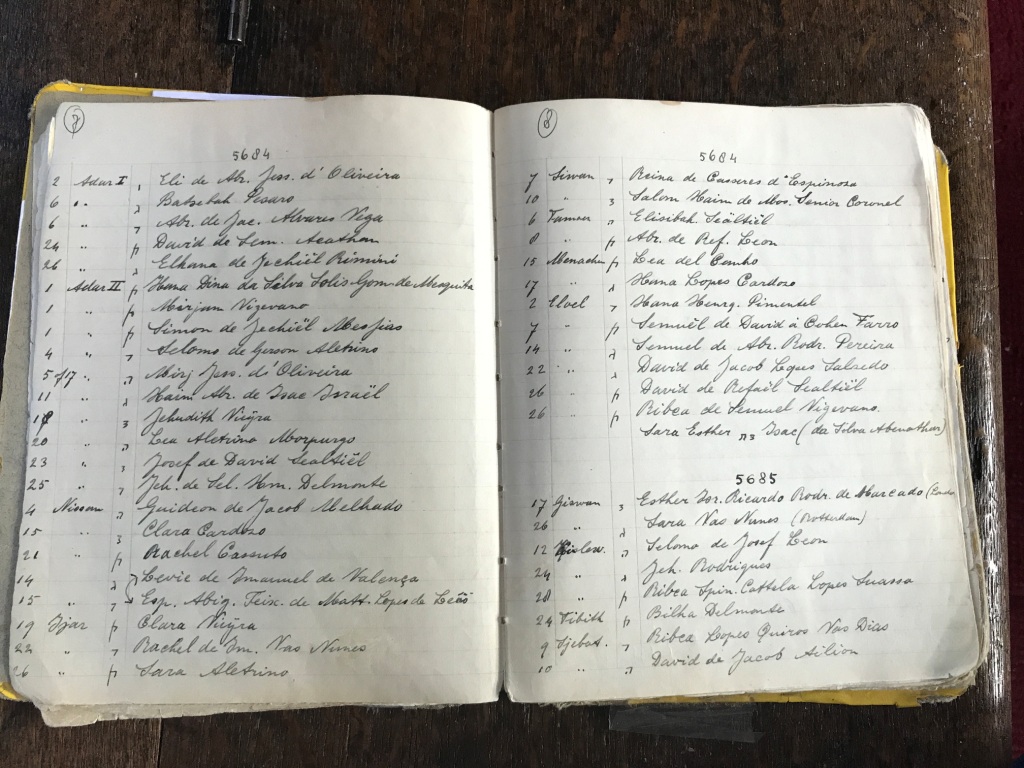 7
5684
2 Adar I ו Eli de Ab. Jess. d'Oliveira
6 " ג Batsebah Pesaro
6 " ג Abr. de Jac. Alvares Vega
24 " ק David de Sem. Acathan
26 " ג Elkana de Jechiël Rimini
1 Adar II ק Hana Dina da Silva Solis-Gom. de Mesquita
1 " ק Mirjam Vigevano
1 " ק Simon de Jechiël Messias
4 " ד Selomo de Gerson Aletrino
5/17 " ה Mirj Jess. d'Oliveira
11 " ג Haim Abr. de Isac Israël
" Jehudith Vieyra
20 " ה Lea Aletrino Morpurgo
23 " Josef de David Sealtiël
25 " ד Jeh. de Sel. Hm. Delmonte
4 Nissan ה Guideon de Jacob Melhado
15 Clara Cardozo
21 " ק Rachel Cassuto
14 " Levie de Imanuel de Valença
15 " Esp. Abig. Teix. de Matt. Lopes de Leão
19 Ijar ק Clara Vieyra
22 " ד Rachel de Im. Vas Nunes
26 " ק Sara Aletrino
8
5684
7 Siwan ד Reina de Casseres d'Espinosa
10 " Salom Haim de Mos. Senior Coronel
6 Tamuz ד Elisibah Sealtiël
8 " ק Abr. de Ref. Leon
15 Menachem ק Lea del Canho
17 " ג Hana Lopes Cardozo
2 Eloel ד Hana Henrq. Pimentel
7 " ק Semuël de David a Cohen Farro
14 " ג Semuel de Abr. Rodr. Pereira
22 " ה David de Jacob Lopes Salzedo
26 " ק David de Refaël Sealtiël
26 " ק Ribca de Semuel Vigevano.
Sara Esther בת Isac (da Silva Abenathar)
5685
17 Giswan Esther Isr. Ricardo Rodr. de Marcado
26 " ג Sara Vas Nunes (Rotterdam)
12 Kislew. ה Selomo de Josef Leon
24 " ג Jeh. Rodrigues
28 " ק Ribca Spin. Cattela Lopes Suassa
24 Tibith ק Bilha Delmonte
9 Sjebat. ד Ribca Lopes Quiros Vas Dias
10 " ד David de Jacob Ailion